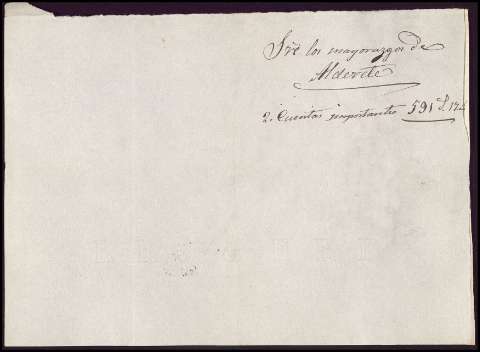 Sre los mayorazgos de
Alderete
2. Cuentas importantes 591